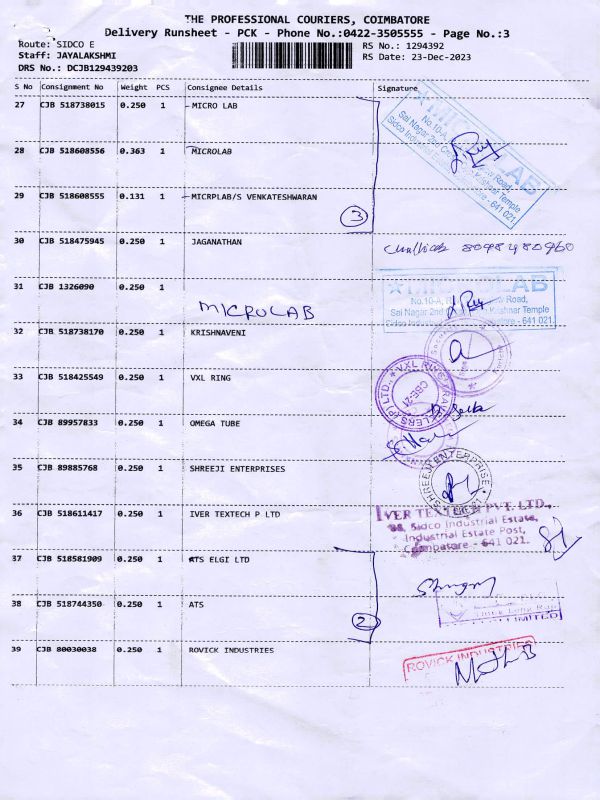 THE PROFESSIONAL COURIERS, COIMBATORE
Delivery Runsheet - PCK - Phone No.:0422-3505555 - Page No.:3
Route: SIDCO E
RS No.: 1294392
Staff: JAYALAKSHMI
RS Date: 23-Dec-2023
DRS No.: DCJB129439203
S No Consignment No Weight PCS Consignee Details Signature
27 CJB 518738015 0.250 1 MICRO LAB
No.10-A,
Sai Nagar 2nd
Krishnar Temple
Sidco Industrial
- 641 021.
28 CJB 518608556 0.363 1 MICROLAB
29 CJB 518608555 0.131 1 MICRPLAB/S VENKATESHWARAN
3
30 CJB 518475945 0.250 1 JAGANATHAN
31 CJB 1326090 0.250 1
MICROLAB
No.10-A, Road,
Sai Nagar 2nd Krishnar Temple
- 641 021.
32 CJB 518738170 0.250 1 KRISHNAVENI
33 CJB 518425549 0.250 1 VXL RING
CBE-21
34 CJB 89957833 0.250 1 OMEGA TUBE
35 CJB 89885768 0.250 1 SHREEJI ENTERPRISES
SHREEJI ENTERPRISE
36 CJB 518611417 0.250 1 IVER TEXTECH P LTD
IVER TEXTECH PVT. LTD.,
88, Sidco Industrial Estate,
Industrial Estate Post,
Coimbatore - 641 021.
37 CJB 518581909 0.250 1 ATS ELGI LTD
38 CJB 518744350 0.250 1 ATS
2
LIMITED
39 CJB 80030038 0.250 1 ROVICK INDUSTRIES
ROVICK INDUSTRIES